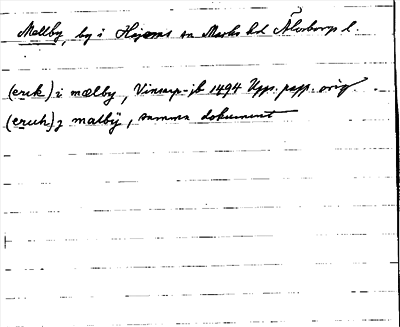 Mellby, by i Hajoms sn Marks hd Älvsborgs l.
(erik) i mælby, Vinsarp-jb 1494 Upps. papp. orig.
(eruh) j malbÿ, samma dokument